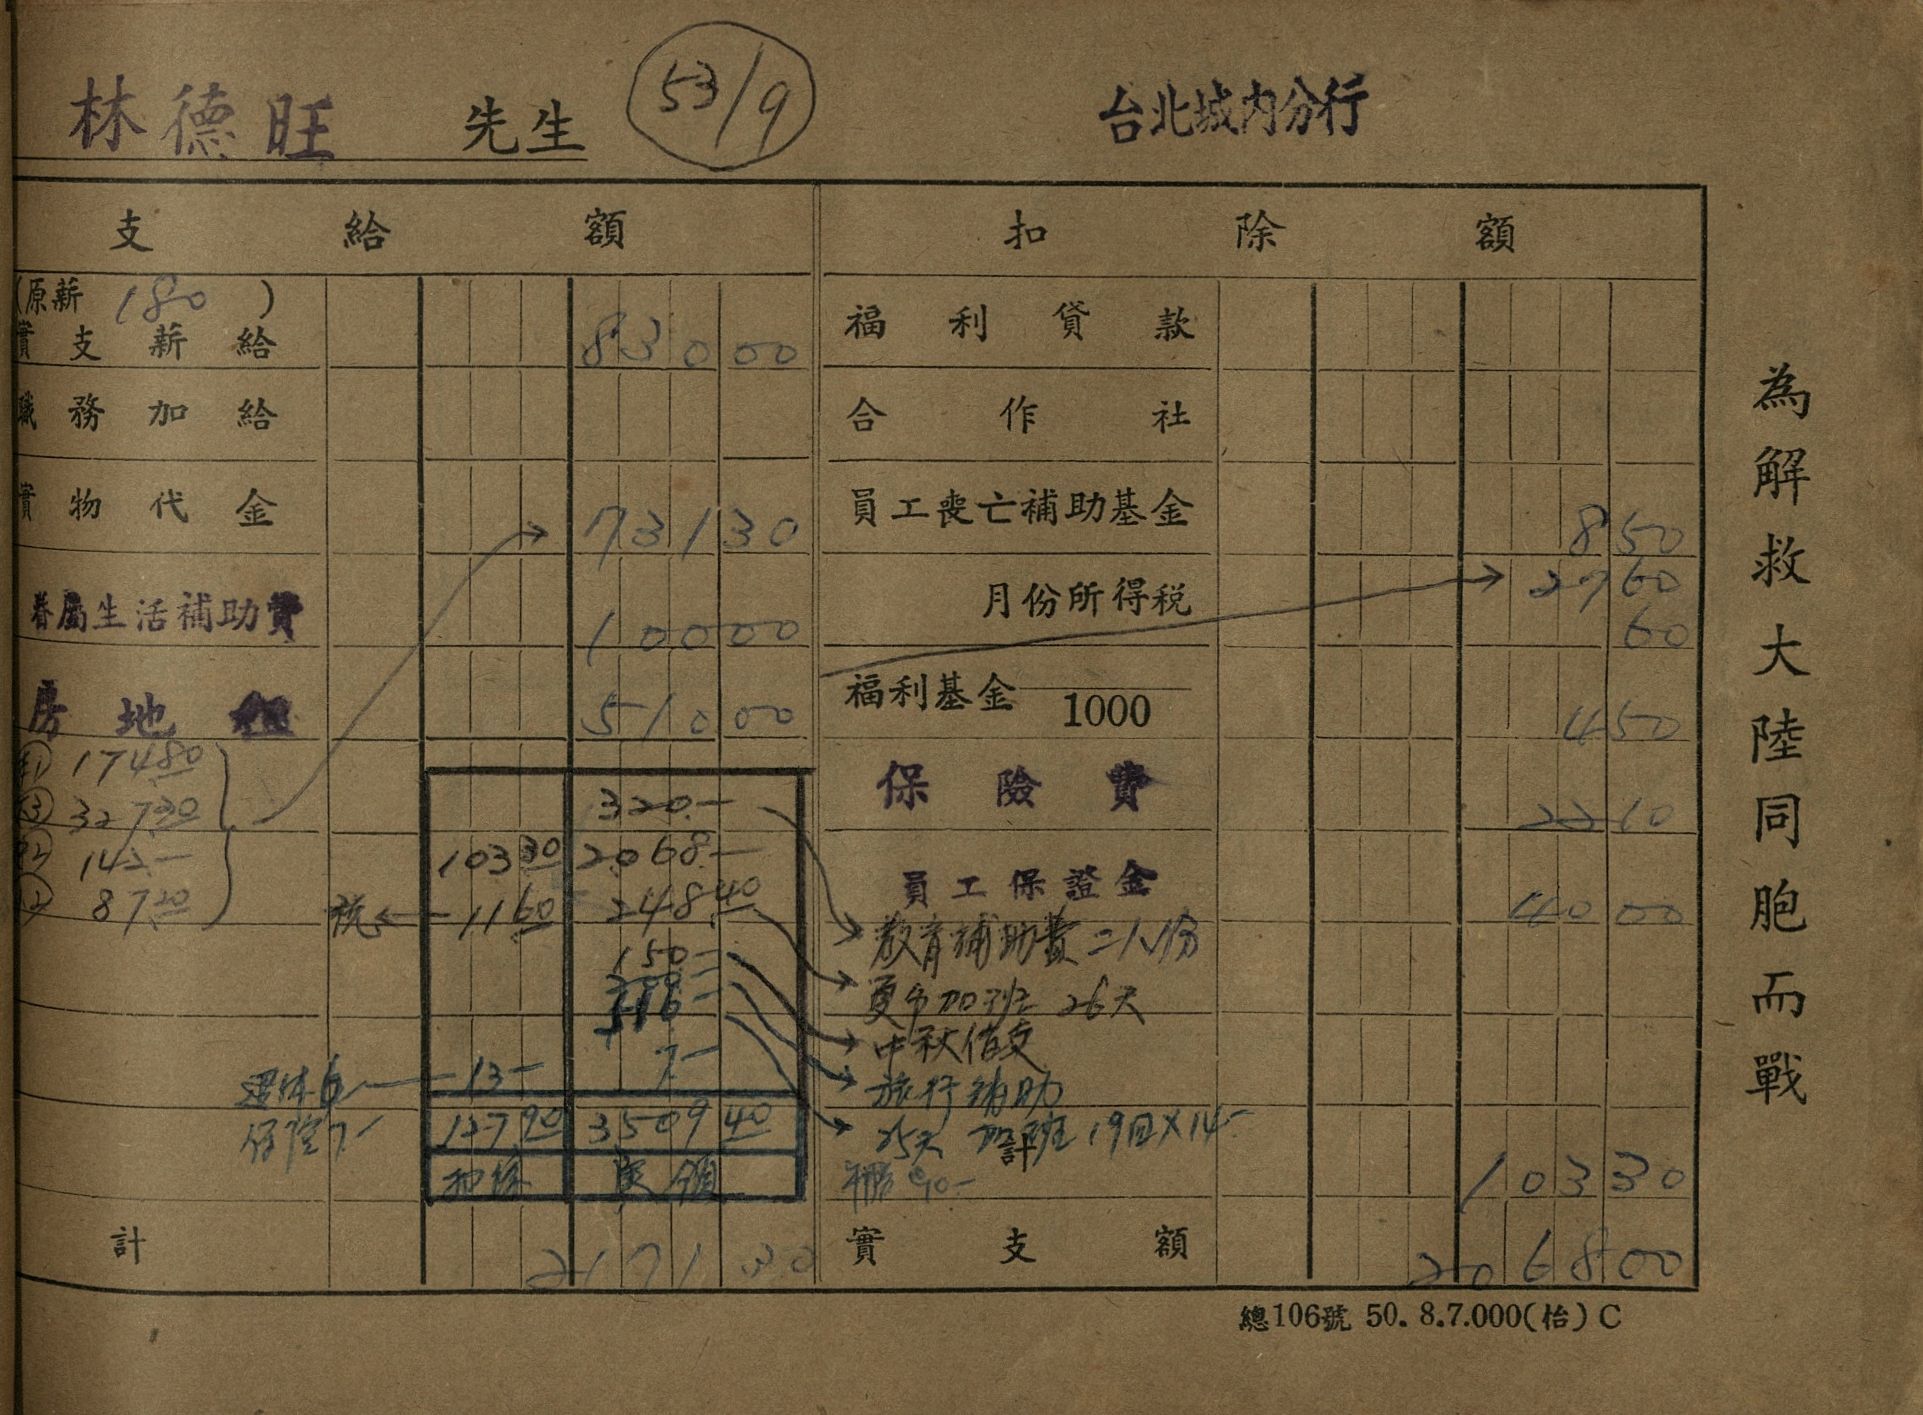 林德旺 先生 53/9 台北城內分行
支給額 扣除額
(原薪 180 )
實支薪給 830 00 福利貸款
職務加給 合作社
實物代金 731 30 員工喪亡補助基金 8 50
27 60
眷屬生活補助費 100 00 月份所得稅 60
房地租 510 00 福利基金 1000 4 50
174 80
③ 327.30 320.— 保險費 22 10
142— 103 30 2068.—
87.20 税 11 60 248 40 員工保證金 40 00
教育補助費二人份
150— 加班 26天
中秋借支
13— 7— 旅行補助
保險7— 127 90 3509 40 25天 加班 19回×14—
計 103 30
扣除 實領 90—
計 2171 30 實支額 2068 00
總106號 50. 8.7.000(怡) C
為解救大陸同胞而戰